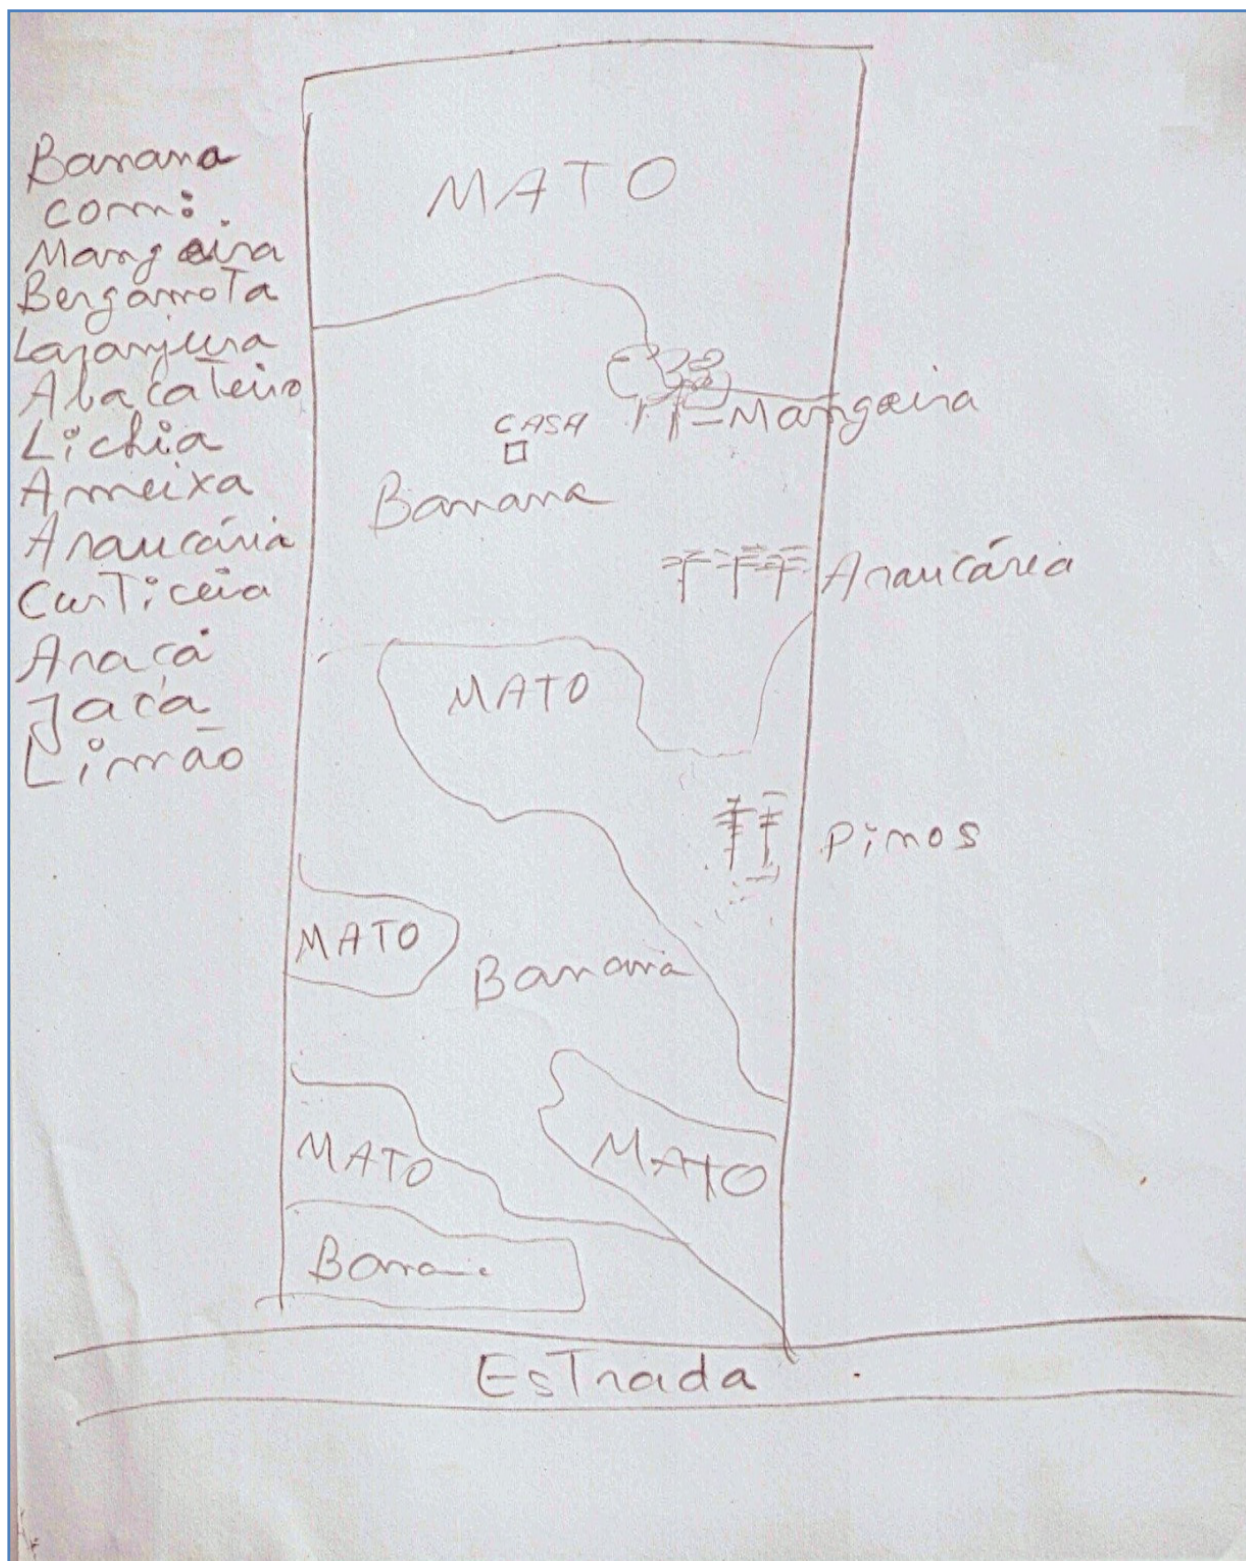 Banana
com:
Mangeira
Bergamota
Lajanjeira
Abacateiro
Lichia
Ameixa
Araucária
Curticeia
Araçá
Jaca
Limão
MATO
Mangeira
CASA
Banana
Araucária
MATO
Pinos
MATO
Banana
MATO
MATO
Estrada